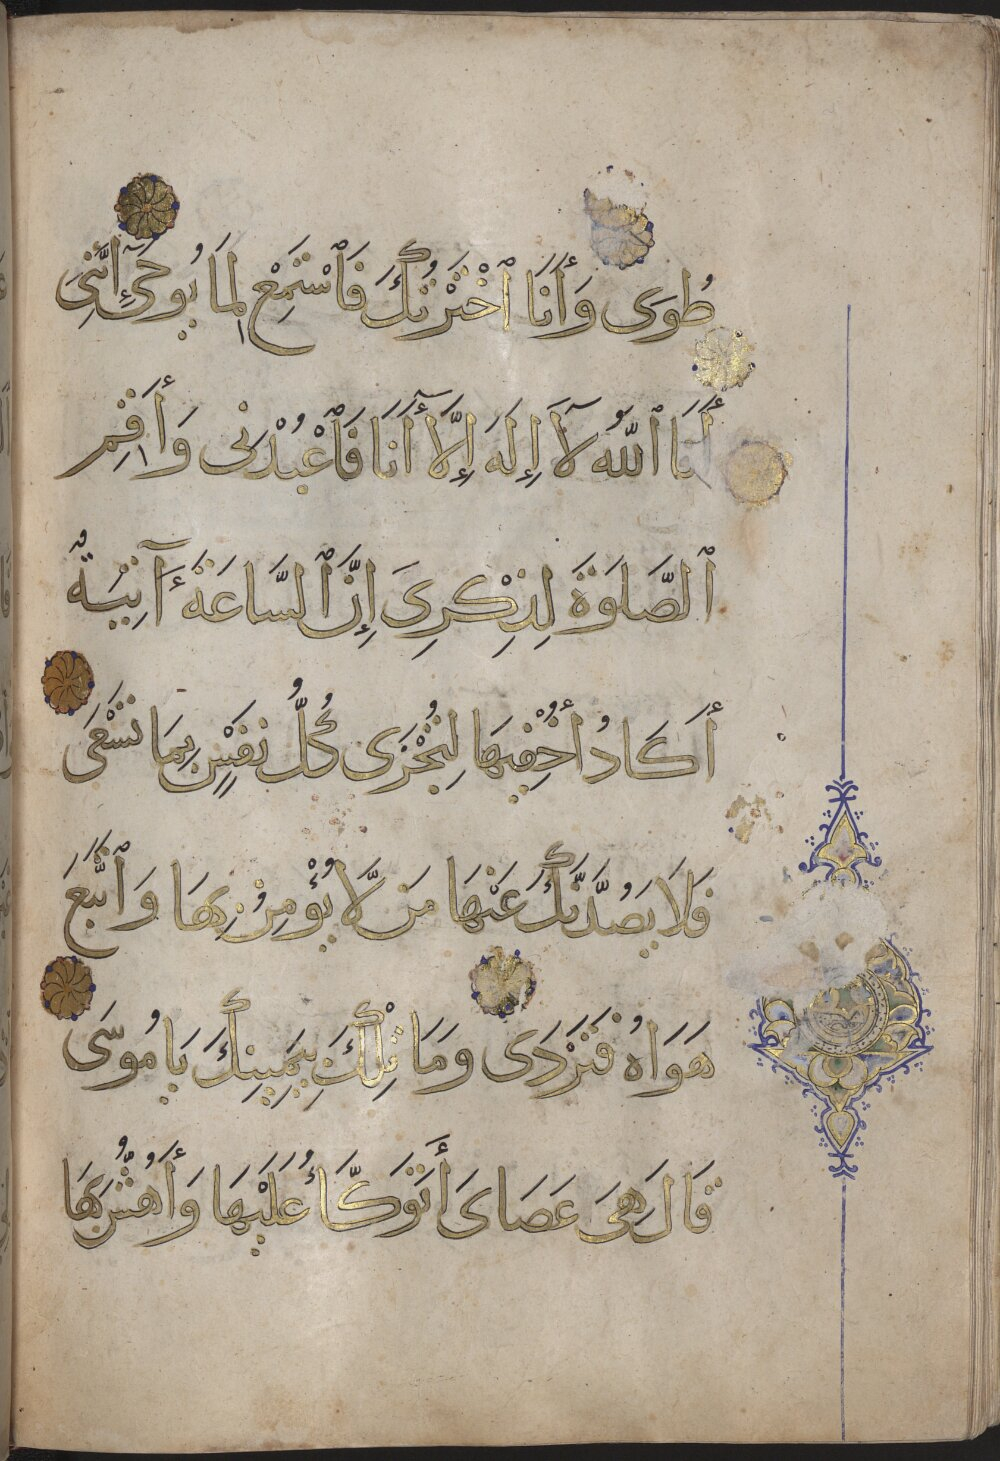 طُوَى وَأَنَا ٱخْتَرْتُكَ فَٱسْتَمِعْ لِمَا يُوحَىٰٓ إِنَّنِى
أَنَا ٱللَّهُ لَآ إِلَهَ إِلَّآ أَنَا فَٱعْبُدْنِى وَأَقِمِ
ٱلصَّلَوٰةَ لِذِكْرِىَ إِنَّ ٱلسَّاعَةَ ءَآتِيَةٌ
أَكَادُ أُخْفِيهَا لِتُجْزَى كُلُّ نَفْسٍ بِمَا تَسْعَى
فَلَا يَصُدَّنَّكَ عَنْهَا مَن لَّا يُؤْمِنُ بِهَا وَٱتَّبَعَ
هَوَاهُ فَتَرْدَى وَمَا تِلْكَ بِيَمِينِكَ يَامُوسَى
قَالَ هِىَ عَصَاىَ أَتَوَكَّأُ عَلَيْهَا وَأَهُشُّ بِهَا